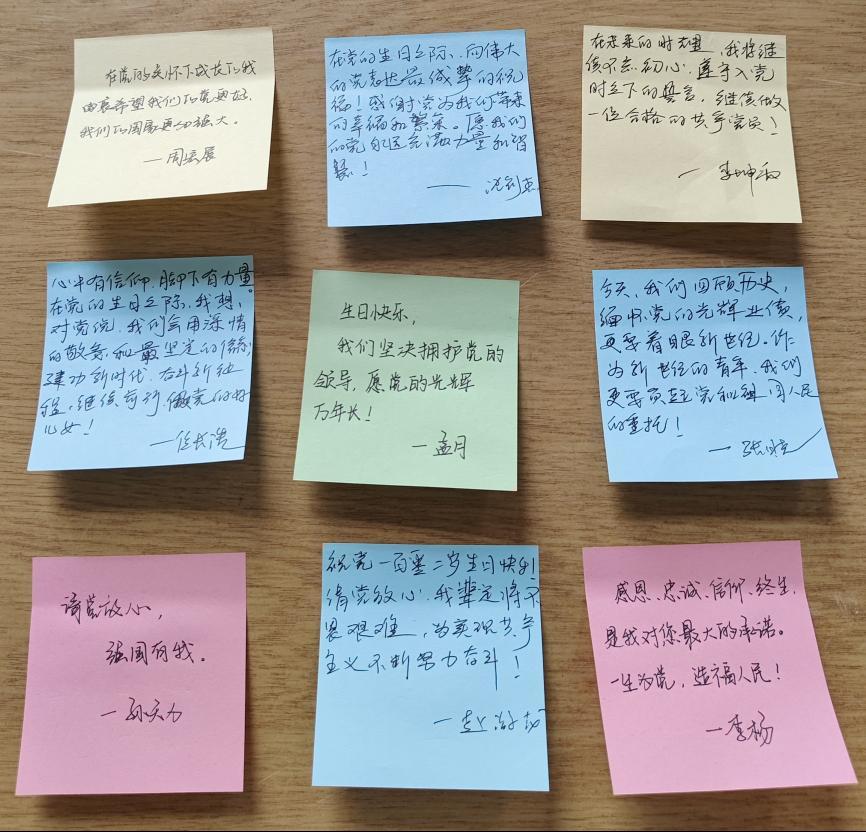 在党的关怀下成长的我
由衷希望我们的党更好,
我们的国家更加强大。
—周宏展
在党的生日之际、向伟大
的党表达最诚挚的祝
福!感谢党为我们带来
的幸福和繁荣。愿我们
的党永远充满力量和智
慧!
——
在未来的时光里,我将继
续不忘初心,遵守入党
时立下的誓言,继续做
一位合格的共产党员!
—李坤
心中有信仰,脚下有力量。
在党的生日之际,我想
对党说,我们会用深情
的敬意和最坚定的信念,
建功新时代,奋斗新征
程,继续前行,做党的好
儿女!
—任长浩
生日快乐,
我们坚决拥护党的
领导,愿党的光辉
万年长!
—孟月
今天,我们回顾历史,
缅怀党的光辉业绩,
更要着眼新世纪。作
为新世纪的青年,我们
更要负起党和祖国人民
的重托!
—张
请党放心,
强国有我。
—孙天力
祝党一百零二岁生日快乐!
请党放心,我辈定将不
畏艰难,为实现共产
主义不断努力奋斗!
—
感恩、忠诚、信仰、终生,
是我对您最大的承诺。
一生为党,造福人民!
—李杨